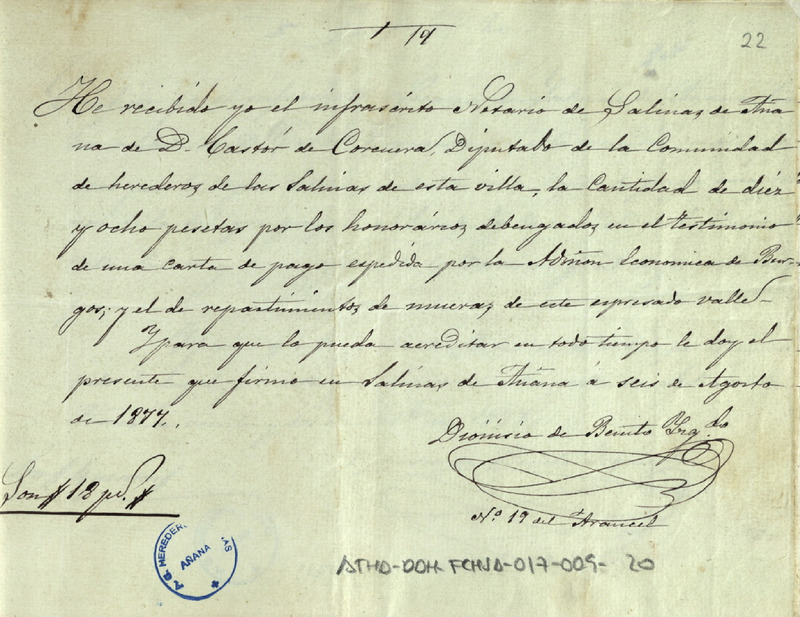 19
22
He recibido yo el infrascrito Notario de Salinas de Aña
na de D. Castór de Corcuera, Diputado de la Comunidad
de herederos de las Salinas de esta villa, la Cantidad de diéz
y ocho pesetas por los honorários debengados en el testimonio
de una carta de pago espedida por la Admon Economica de Bur-
gos; y el de repartimientos de mueras de este espresado valle.
Y para que lo pueda acreditar en todo tiempo le doy el
presente que firmo en Salinas de Añana á seis de Agosto
de 1877.
Dionisio de Benito
Son # 18 ps. #
N.o 19 del Arancel
HEREDEROS
AÑANA
ATHA-DOH-FCHVA-017-009- 20